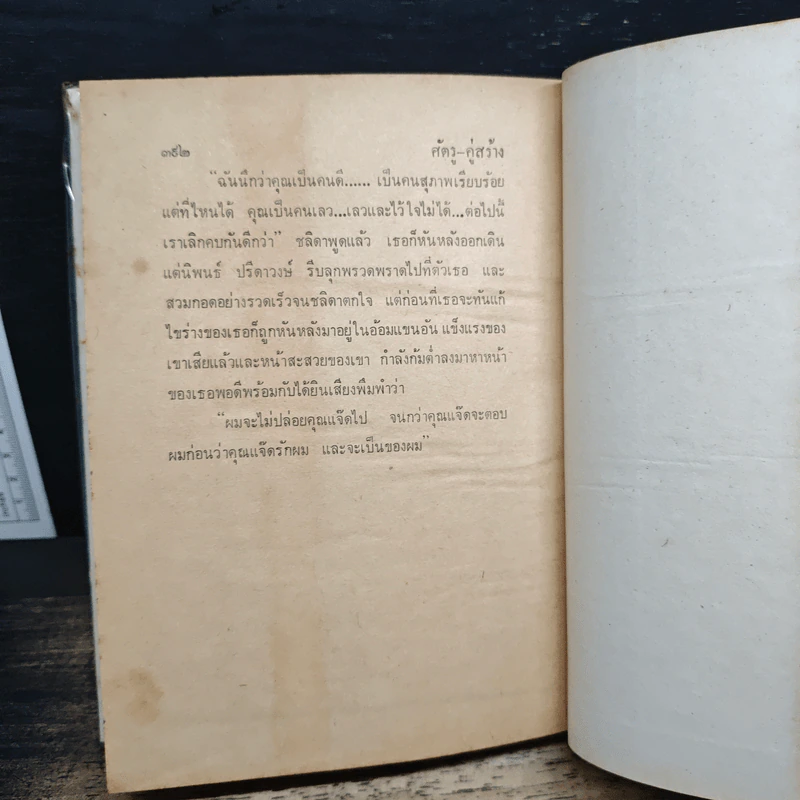 ๓๕๒ ศัตรู-คู่สร้าง
"ฉันนึกว่าคุณเป็นคนดี...... เป็นคนสุภาพเรียบร้อย
แต่ที่ไหนได้ คุณเป็นคนเลว...เลวและไว้ใจไม่ได้...ต่อไปนี้
เราเลิกคบกันดีกว่า" ชลิดาพูดแล้ว เธอก็หันหลังออกเดิน
แต่นิพนธ์ ปรีดาวงษ์ รีบลุกพรวดพราดไปที่ตัวเธอ และ
สวมกอดอย่างรวดเร็วจนชลิดาตกใจ แต่ก่อนที่เธอจะทันแก้
ไขร่างของเธอก็ถูกหันหลังมาอยู่ในอ้อมแขนอัน แข็งแรงของ
เขาเสียแล้วและหน้าสะสวยของเขา กำลังก้มต่ำลงมาหาหน้า
ของเธอพอดีพร้อมกับได้ยินเสียงพึมพำว่า
"ผมจะไม่ปล่อยคุณแจ๊ดไป จนกว่าคุณแจ๊ดจะตอบ
ผมก่อนว่าคุณแจ๊ดรักผม และจะเป็นของผม"